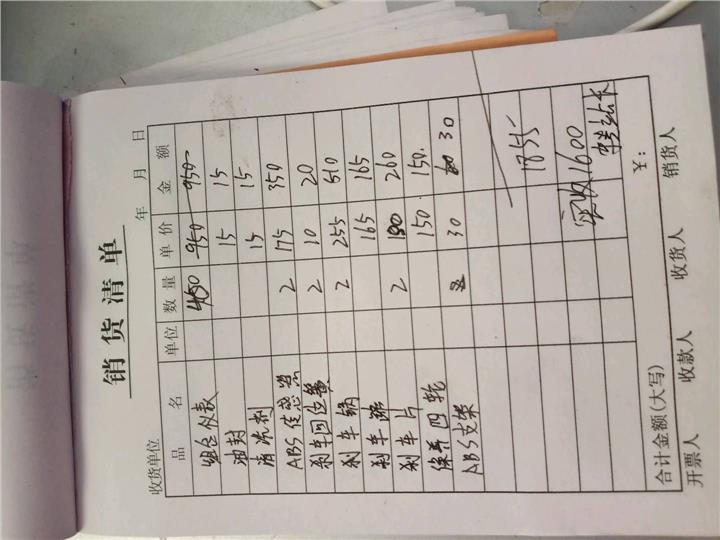 销货清单
收货单位 年 月 日
品 名 单位 数量 单价 金 额
组合仪表 950 950
油封 15 15
清洗剂 15 15
ABS传感器 2 175 350
刹车回位簧 2 10 20
刹车锅 2 255 510
刹车蹄 165 165
刹车片 2 130 260
保养四轮 150 150
ABS支架 30 30
1855
实收1600
合计金额(大写) ¥:
开票人 收款人 收货人 销货人